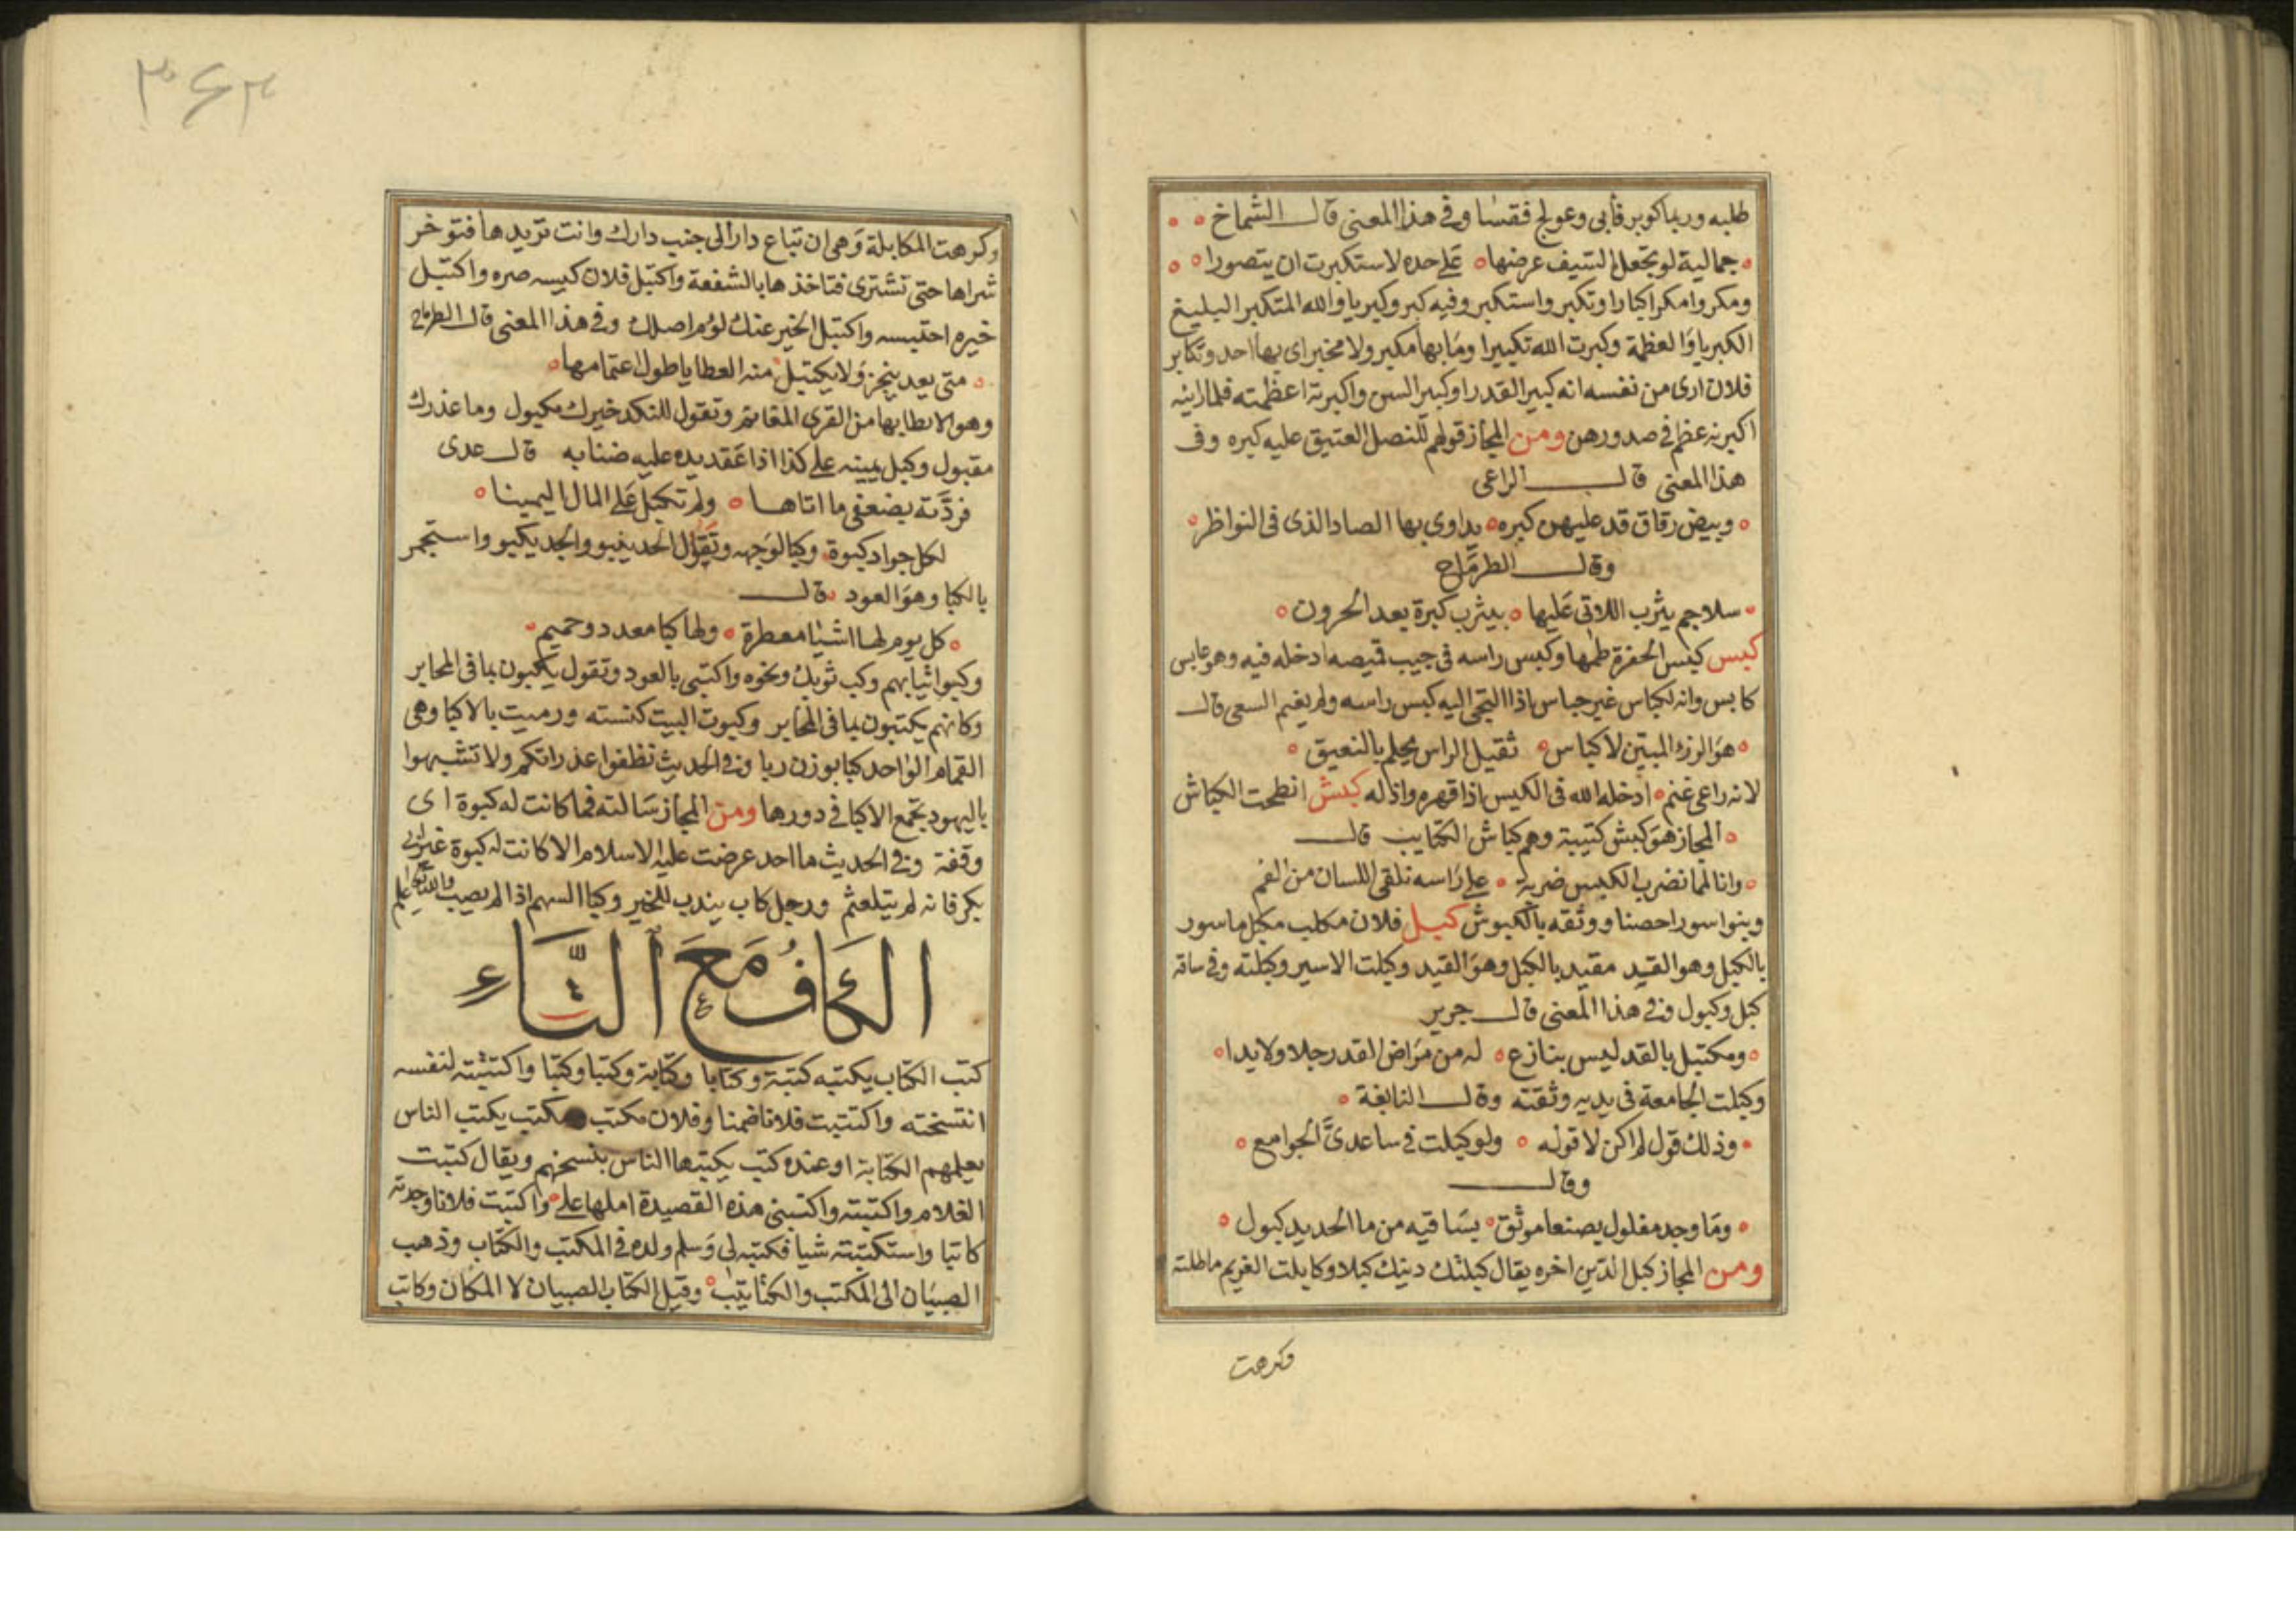 طلبه وربما كوبر فابى وعولج فقسا وفى هذا المعنى قال الشماخ
جمالية لو يجعل السيف عرضها على حده لاستكبرت ان يتصورا
ومكروا مكرا كبارا وتكبر واستكبر وفيه كبر وكبريا والله المتكبر البليغ
الكبريا والعظمة وكبرت الله تكبيرا وما بها مكبر ولا مخبر اى بها احد وتكابر
فلان ارى من نفسه انه كبير القدر او كبير السن واكبرته اعظمته فلما راينه
اكبرنه عظم فى صدورهن ومن المجاز قولهم للنصل العتيق عليه كبره وفى
هذا المعنى قال الراعى
وبيض رقاق قد عليهن كبره يداوى بها الصاد الذى فى النواظر
وقال الطرماح
سلاجم يثرب اللاتى عليها بيثرب كبرة بعد الحرون
كبس كبس الحفرة طمها وكبس راسه فى جيب قميصه ادخله فيه وهو عابس
كابس وانه لكباس غير جباس اذا التجى اليه كبس راسه ولم يغنم السعى قال
هو الرزء المبين لا كباس ثقيل الراس يحلم بالنعيق
لانه راعى غنم ادخله الله فى الكبس اذا قهره واذله كبش انطحت الكباش
المجاز هو كبش كتيبة وهم كباش الكتايب قال
وانا لما نضرب الكبش ضربة على راسه نلقى اللسان من الفم
وبنوا سورا حصنا ووثقه بالكبوش كبل فلان مكلب مكبل ماسور
بالكبل وهو القيد مقيد بالكبل وهو القيد وكبلت الاسير وكبلته وفى ساقه
كبل وكبول وفى هذا المعنى قال جرير
ومكتبل بالقد ليس بنازع له من مراض القد رجلا ولا يدا
وكبلت الجامعة فى يديه وثقته وقال النابغة
وذلك قول لم اكن لاقوله ولو كبلت فى ساعدىّ الجوامع
وقال
وما وجد مغلول بصنعا موثق بساقيه من ما الحديد كبول
ومن المجاز كبل الدين اخره يقال كبلتك دينك كبلا وكابلت الغريم ماطلته
وكرهت
٣٤٣
وكرهت المكابلة وهى ان تباع دار الى جنب دارك وانت تريدها فتوخر
شراها حتى تشترى فتاخذها بالشفعة واكتبل فلان كيسه صره واكتبل
خيره احتبسه واكتبل الخير عنك لوم اصلك وفى هذا المعنى قال الطرماح
متى يعد ينجز ولا يكتبل منه العطايا طول اعتامها
وهو الابطا بها من القرى المغاتم وتقول للنكد خيرك مكبول وما عذرك
مقبول وكبل يمينه على كذا اذا عقد يده عليه ضنا به قال عدى
فردّته بضعفى ما اتاها ولم تكبل على المال اليمينا
لكل جواد كبوة وكبا لوجهه وتقول الحد ينبو والجد يكبو واستجمر
بالكبا وهو العود قال
كل يوم لها اشيا معطرة ولها كبا معدد وحميم
وكبوا ثيابهم وكب ثوبك ونحوه واكتبى بالعود وتقول يكبون بما فى المحابر
وكانهم يكتبون بما فى المحابر وكبوت البيت كنسته ورميت بالاكبا وهى
القمام الواحد كبا بوزن ربا وفى الحديث نظفوا عذراتكم ولا تشبهوا
باليهود تجمع الاكبا فى دورها ومن المجاز سالته فما كانت له كبوة اى
وقفة وفى الحديث ما احد عرضت عليه الاسلام الا كانت له كبوة غير ابى
بكر فانه لم يتلعثم ورجل كاب يندب للخير وكبا السهم اذا لم يصيب والله تعالى اعلم
الكَافُ مَعَ التَّاء
كتب الكتاب يكتبه كتبة وكتابا وكتابة وكتبا وكتبا واكتتبته لنفسه
انتسخته واكتتبت فلانا ضمنا وفلان مكتب مكتب يكتب الناس
يعلمهم الكتابة او عنده كتب يكتبها الناس بنسخهم ويقال كتبت
الغلام واكتبته واكتبنى هذه القصيدة املها على واكتبت فلانا وجدته
كاتبا واستكتبته شيا فكتبه لى وسلم ولده فى المكتب والكتاب وذهب
الصبيان الى المكتب والكتاتيب وقيل الكتاب الصبيان لا المكان وكاتب